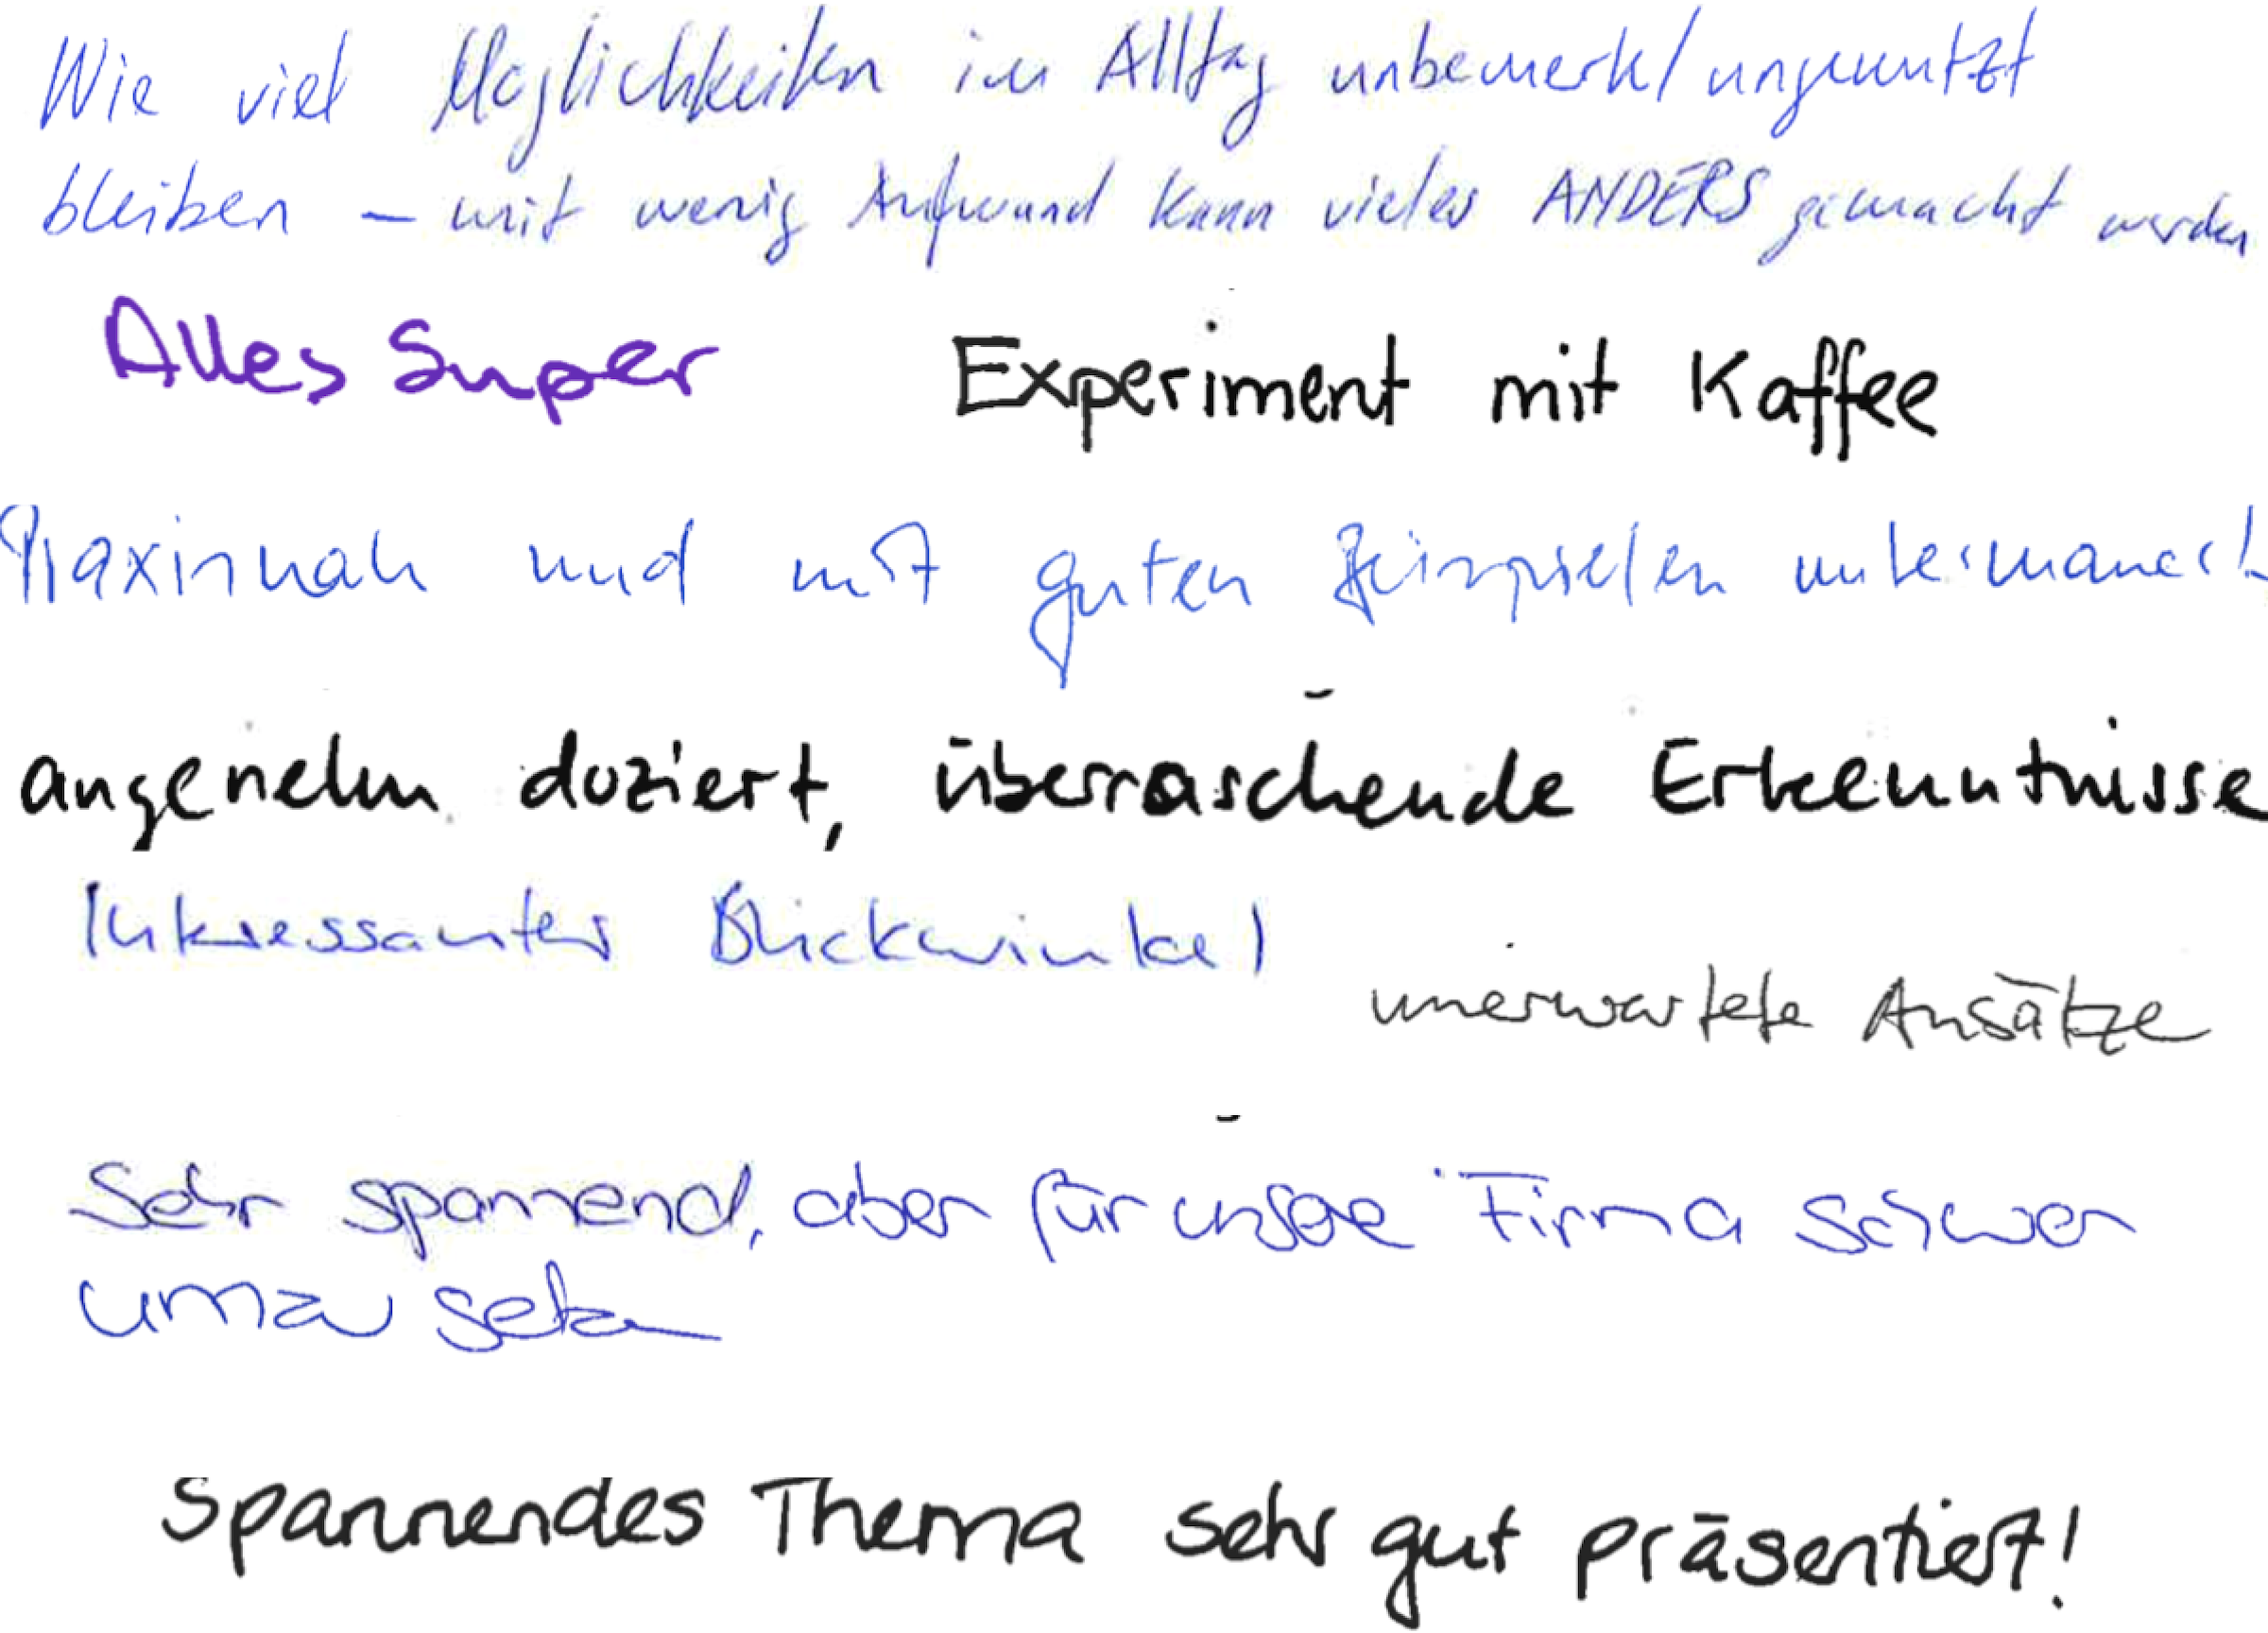 Wie viel Möglichkeiten im Alltag unbemerkt/ungenutzt
bleiben – mit wenig Aufwand kann vieles ANDERS gemacht werden
Alles Super
Experiment mit Kaffee
Praxisnah und mit guten Beispielen untermauert
angenehm doziert, überraschende Erkenntnisse
Interessanter Blickwinkel
unerwartete Ansätze
Sehr spannend, aber für unsere Firma schwer
umzusetzen
Spannendes Thema sehr gut präsentiert!